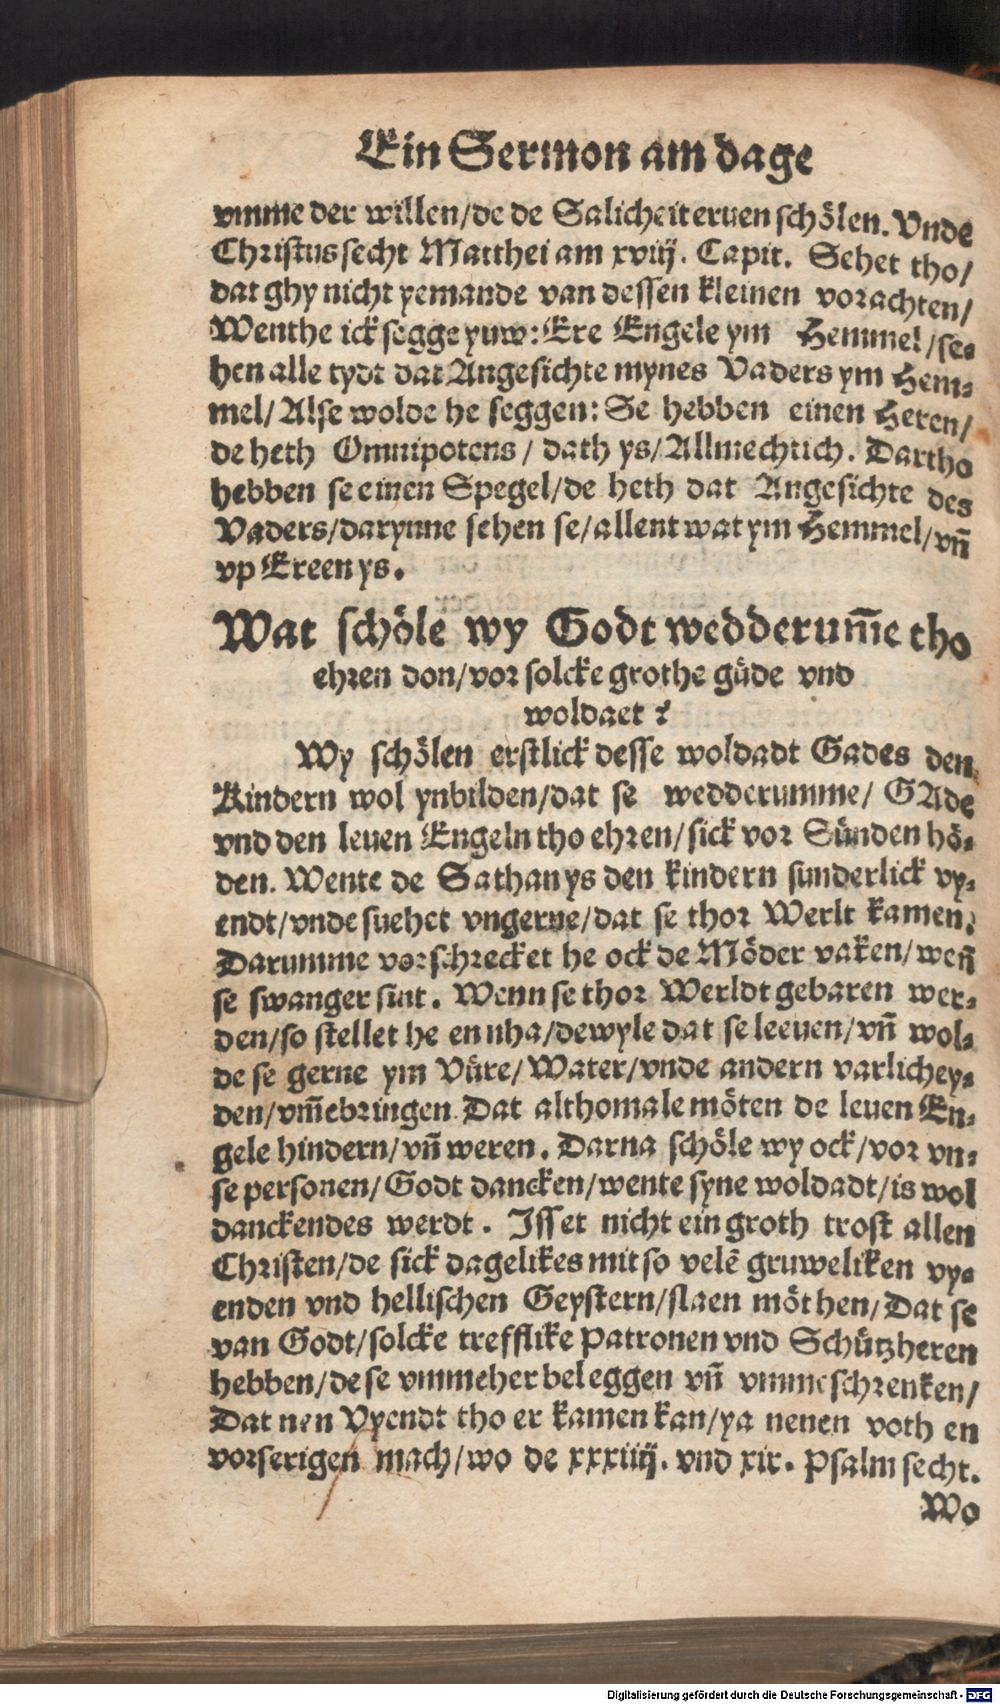 Ein Sermon am dage
vmme der willen/de de Salicheit eruen schölen. Vnde
Christus secht Matthei am xviij. Capit. Sehet tho/
dat ghy nicht yemande van dessen kleinen vorachten/
Wenthe ick segge yuw: Ere Engele ym Hemmel/se⸗
hen alle tydt dat Angesichte mynes Vaders ym Hem⸗
mel/Alse wolde he seggen: Se hebben einen Heren/
de heth Omnipotens/dath ys/Allmechtich. Dartho
hebben se einen Spegel/de heth dat Angesichte des
Vaders/darynne sehen se/allent wat ym Hemmel/vñ
vp Ereen ys.
Wat schöle wy Godt wedderum̃e tho
ehren don/vor solcke grothe güde vnd
woldaet?
Wy schölen erstlick desse woldadt Gades den
Kindern wol ynbilden/dat se wedderumme/GAde
vnd den leuen Engeln tho ehren/sick vor Sünden hö⸗
den. Wente de Sathan ys den kindern sunderlick vy⸗
endt/vnde suehet vngerne/dat se thor Werlt kamen.
Darumme vorschrecket he ock de Möder vaken/weñ
se swanger sint. Wenn se thor Werldt gebaren wer⸗
den/so stellet he en nha/dewyle dat se leeuen/vñ wol⸗
de se gerne ym Vüre/Water/vnde andern varlichey⸗
den/vm̃ebringen. Dat althomale möten de leuen En⸗
gele hindern/vñ weren. Darna schöle wy ock/vor vn⸗
se personen/Godt dancken/wente syne woldadt/is wol
danckendes werdt. Isset nicht ein groth trost allen
Christen/de sick dagelikes mit so velẽ gruweliken vy⸗
enden vnd hellischen Geystern/slaen möthen/Dat se
van Godt/solcke trefflike Patronen vnd Schützheren
hebben/de se vmmeher beleggen vñ vmmeschrenken/
Dat nen Vyendt tho er kamen kan/ya nenen voth en
vorserigen mach/wo de xxxiiij. vnd xix. Psalm secht.
Wo
Digitalisierung gefördert durch die Deutsche Forschungsgemeinschaft - DFG